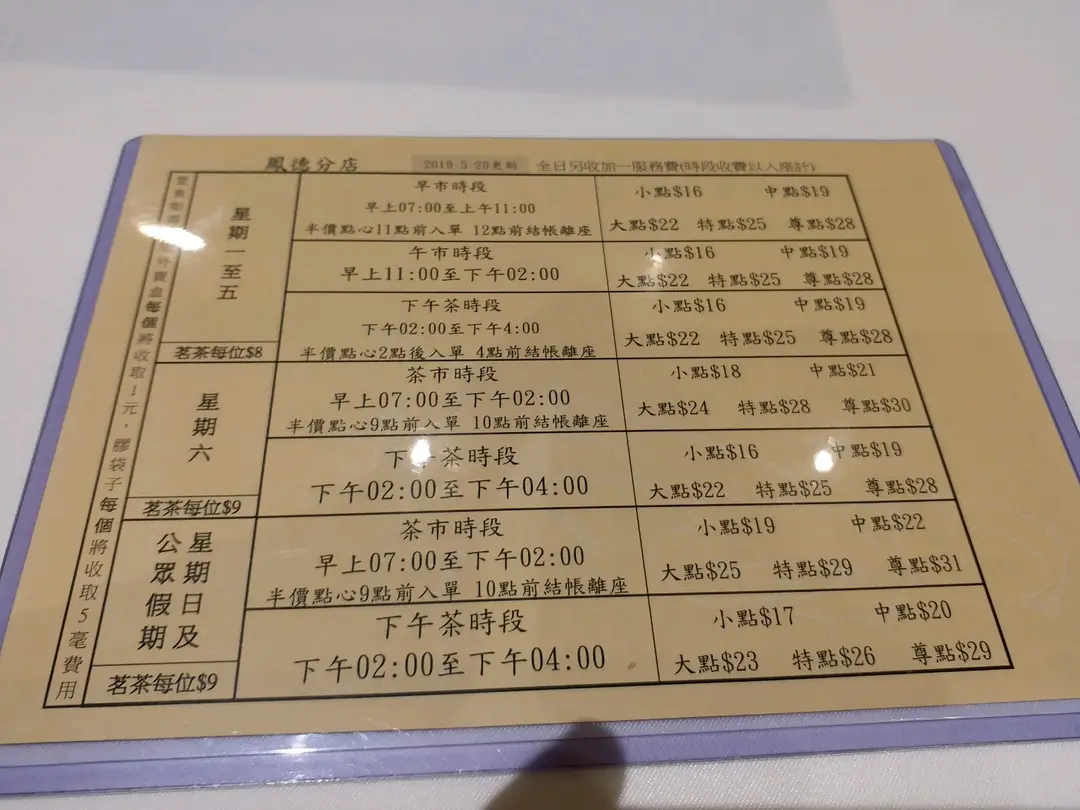 鳳德分店 2019-5-20更新 全日另收加一服務費(時段收費以入座計)
星期一至五
茗茶每位$8
早市時段
早上07:00至上午11:00
半價點心11點前入單 12點前結帳離座
小點$16 中點$19
大點$22 特點$25 尊點$28
午市時段
早上11:00至下午02:00
小點$16 中點$19
大點$22 特點$25 尊點$28
下午茶時段
下午02:00至下午4:00
半價點心2點後入單 4點前結帳離座
小點$16 中點$19
大點$22 特點$25 尊點$28
星期六
茗茶每位$9
茶市時段
早上07:00至下午02:00
半價點心9點前入單 10點前結帳離座
小點$18 中點$21
大點$24 特點$28 尊點$30
下午茶時段
下午02:00至下午04:00
小點$16 中點$19
大點$22 特點$25 尊點$28
星期日及
公眾假期
茗茶每位$9
茶市時段
早上07:00至下午02:00
半價點心9點前入單 10點前結帳離座
小點$19 中點$22
大點$25 特點$29 尊點$31
下午茶時段
下午02:00至下午04:00
小點$17 中點$20
大點$23 特點$26 尊點$29
外賣盒每個將收取1元，膠袋子每個將收取5毫費用